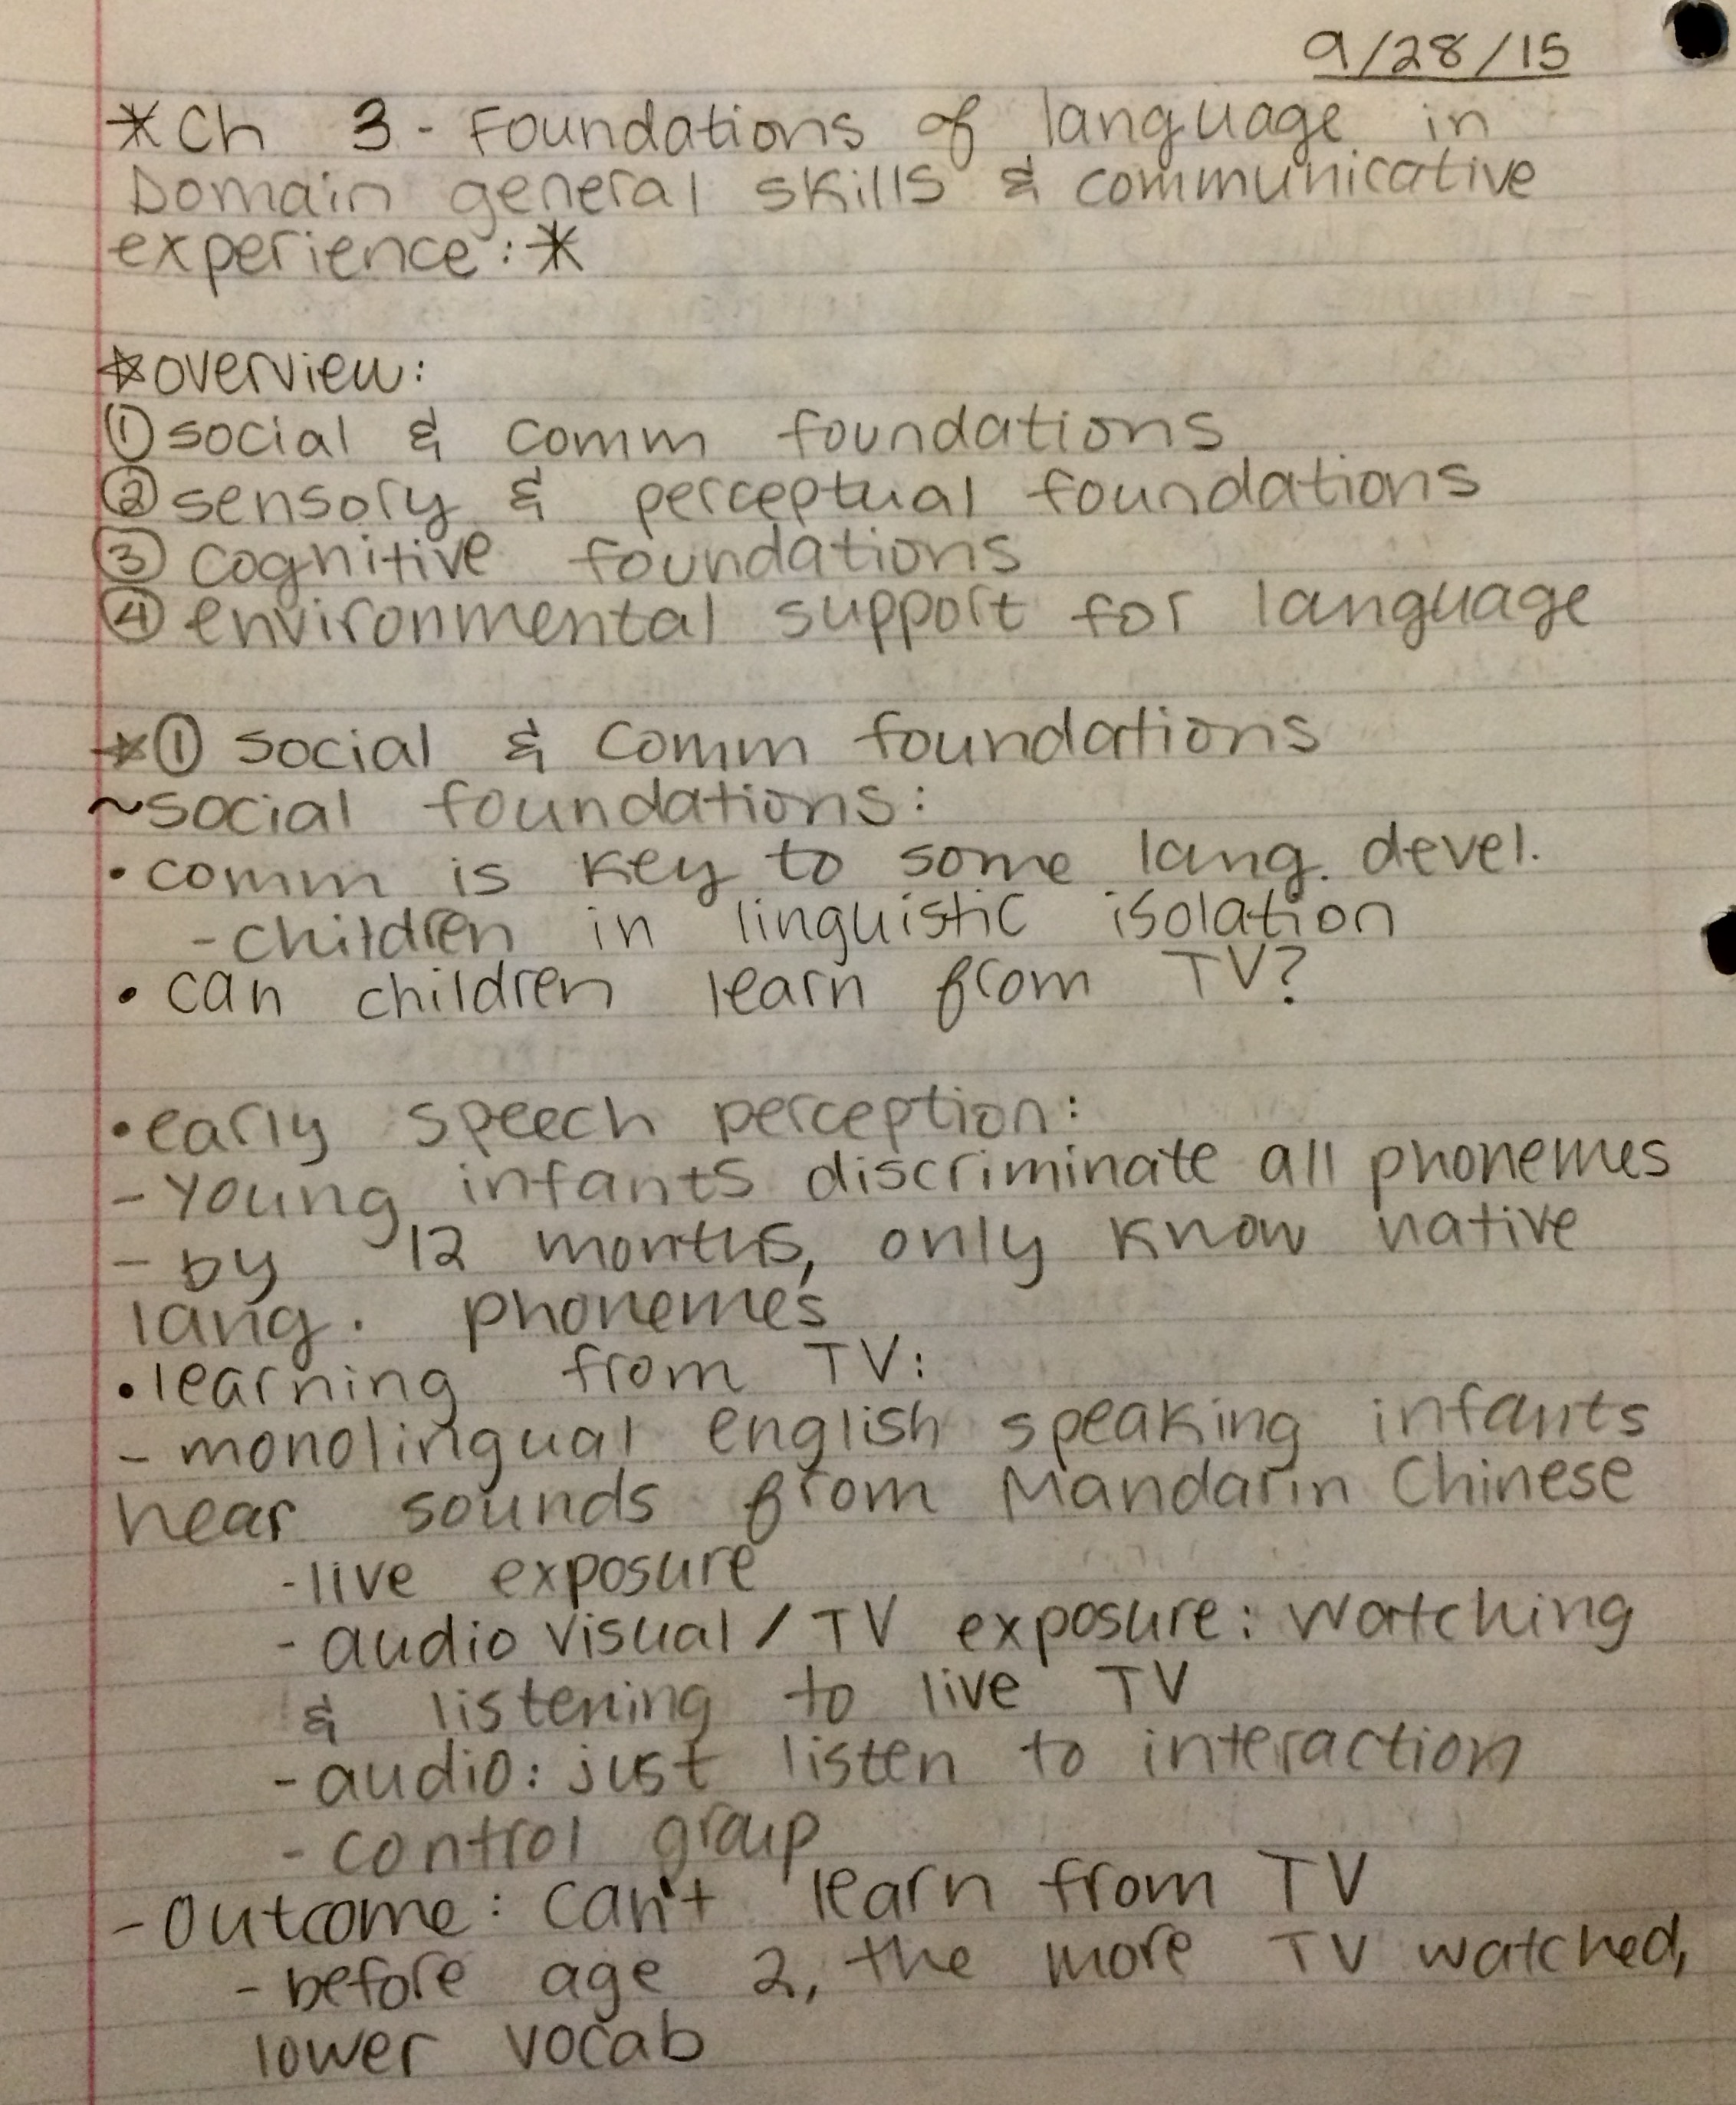 9/28/15
*Ch 3 - Foundations of language in
Domain general skills & communicative
experience:*
☆overview:
① social & comm foundations
② sensory & perceptual foundations
③ cognitive foundations
④ environmental support for language
☆① social & comm foundations
~social foundations:
• comm is key to some lang. devel.
- children in linguistic isolation
• can children learn from TV?
• early speech perception:
- young infants discriminate all phonemes
- by 12 months, only know native
lang. phonemes
• learning from TV:
- monolingual english speaking infants
hear sounds from Mandarin Chinese
- live exposure
- audio visual / TV exposure: watching
& listening to live TV
- audio: just listen to interaction
- control group
- Outcome: can't learn from TV
- before age 2, the more TV watched,
lower vocab